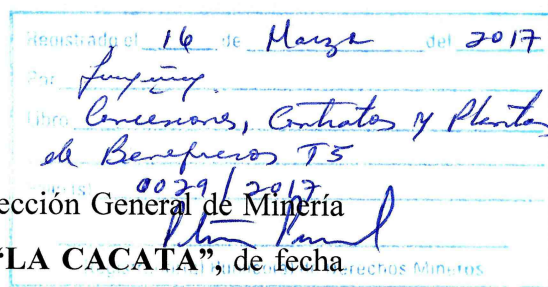 Registrado el 16 de Marzo del 2017
Por
Libro Concesiones, Contratos y Plantas
de Beneficios T5
0029/2017
ección General de Minería
"LA CACATA", de fecha
Derechos Mineros